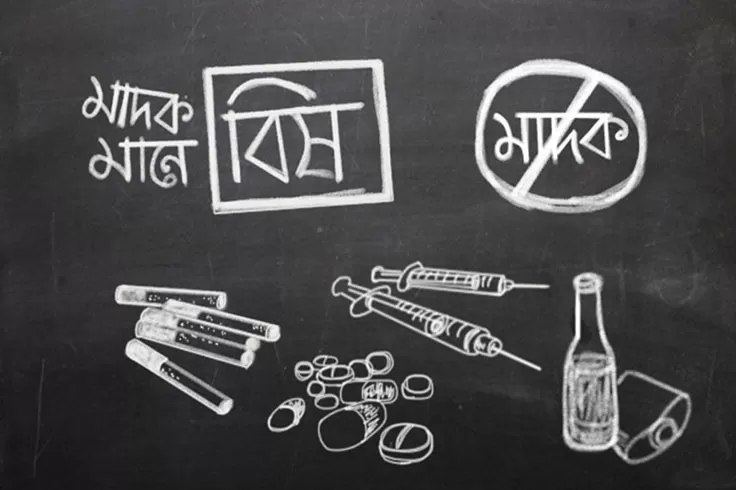 মাদক
মানে
বিষ
মাদক